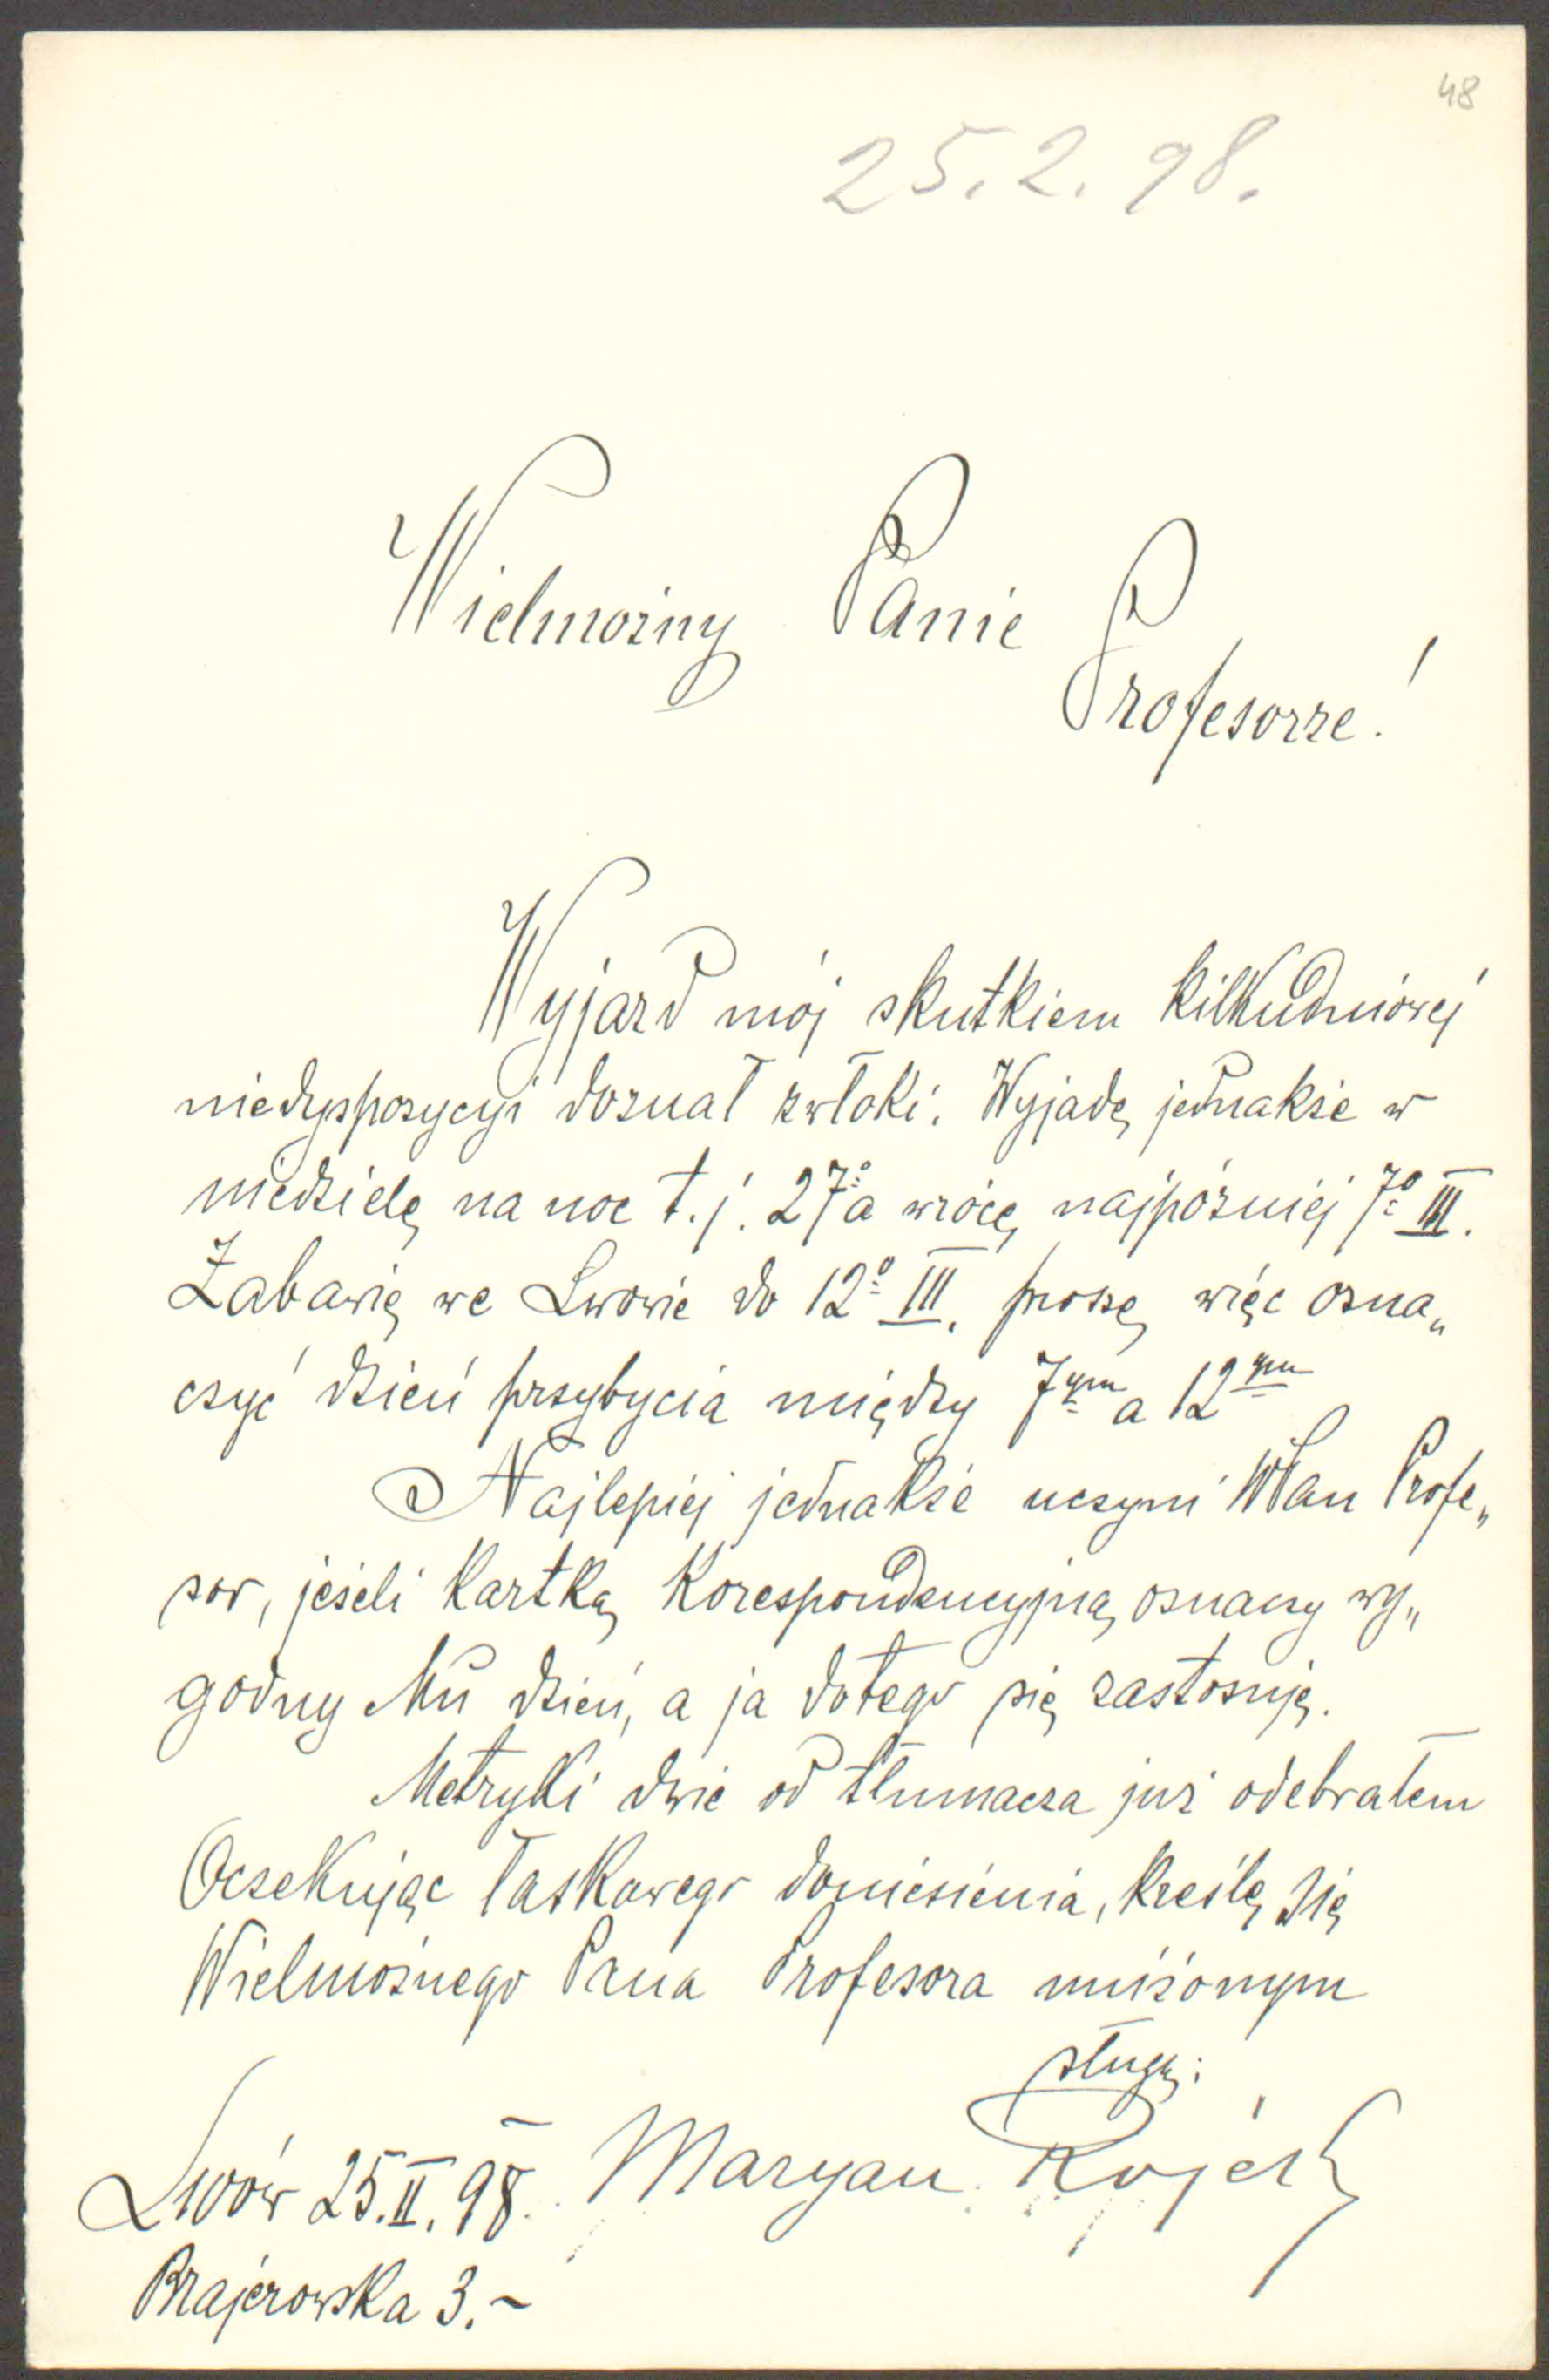 48
25. 2. 98.
Wielmożny Panie
Profesorze!
Wyjazd mój skutkiem kilkudniowej
niedyspozycyi doznał zwłoki. Wyjadę jednakże w
niedzielę na noc t. j. 27º a wrócę najpóźniej 7º III.
Zabawię we Lwowie do 12º III. proszę więc ozna„
czyć dzień przybycia między 7ym a 12ym
Najlepiej jednakże uczyni WPan Profe„
sor, jeżeli kartką korespondencyjną oznaczy wy„
godny Mu dzień, a ja do tego się zastosuję.
Metryki dwie od tłumacza już odebrałem
Oczekując łaskawego doniesienia, kreślę się
Wielmożnego Pana Profesora uniżonym
sługą:
Lwów 25. II. 98. Maryan
Brajerowska 3.-